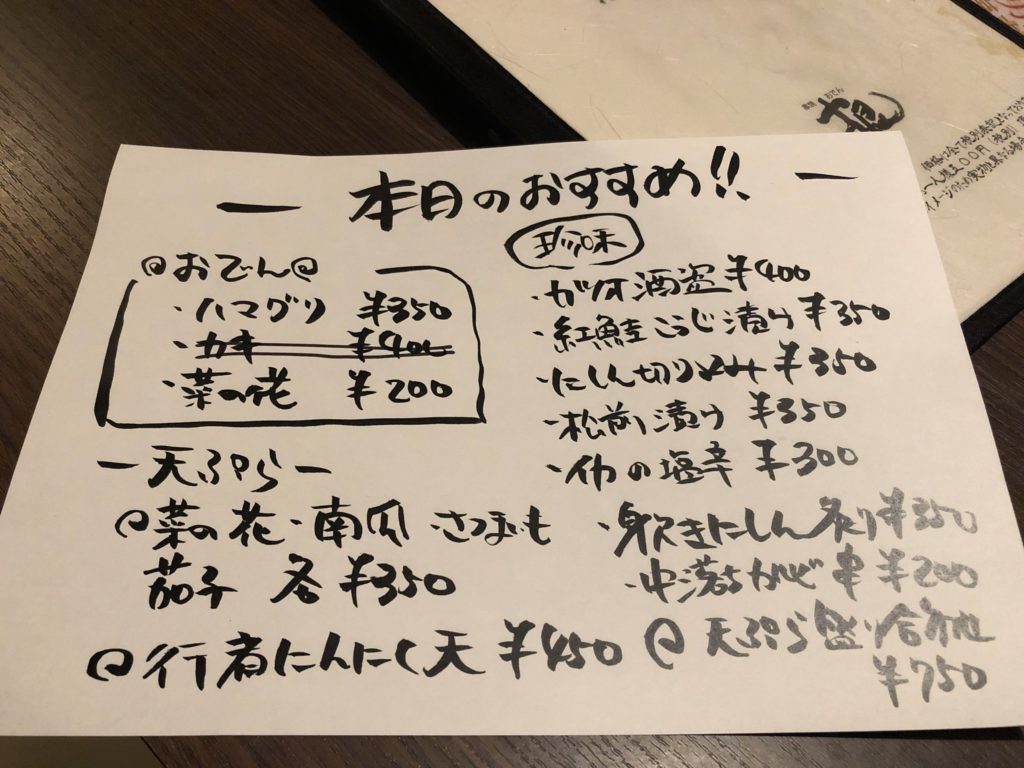 本日のおすすめ!!
おでん
・ハマグリ ¥350
・カキ ¥400
・菜の花 ¥200
珍味
・ガツオ酒盗 ¥400
・紅鮭こうじ漬け ¥350
・にしん切りこみ ¥350
・松前漬け ¥350
・イカの塩辛 ¥300
・身欠きにしん炙り ¥350
・中落ちカルビ串 ¥200
ー天ぷらー
菜の花・南瓜・さつまいも
茄子 各 ¥350
行者にんにく天 ¥450
天ぷら盛り合わせ
¥750
おでん